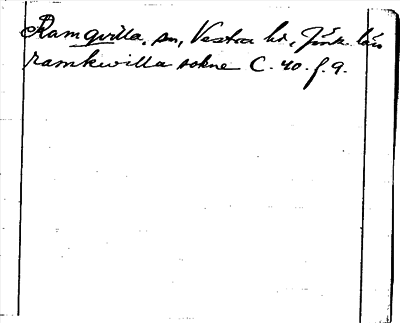 Ramqvilla, sn, Vestra hd, Jönk. län
ramkwilla sokne C. 40. f. 9.